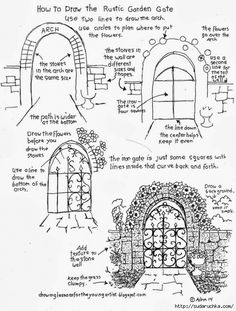 How To Draw The Rustic Garden Gate
Use two lines to draw the arch.
Use circles to plan where to put
the flowers.
ARCH
The flowers
go over the
arch.
the stones
in the arch are
the same size
The stones in
the wall are
different
sizes and
shapes.
Use a
second
line for
the top
of the
wall
The iron
gate is
four
squares
The path is wider
at the bottom
the line down
the center helps
keep it even
Draw the flowers
before you
draw the
stones
The iron gate is just some squares with
lines inside that curve back and forth.
Use a line to
draw the
bottom of the
arch.
Draw a
background,
Add
texture to
the stone
wall
keep the grass
clumpy.
© Adrn 14
drawinglessonsfortheyoungartist.blogspot.com
http://sudaruchka.com/